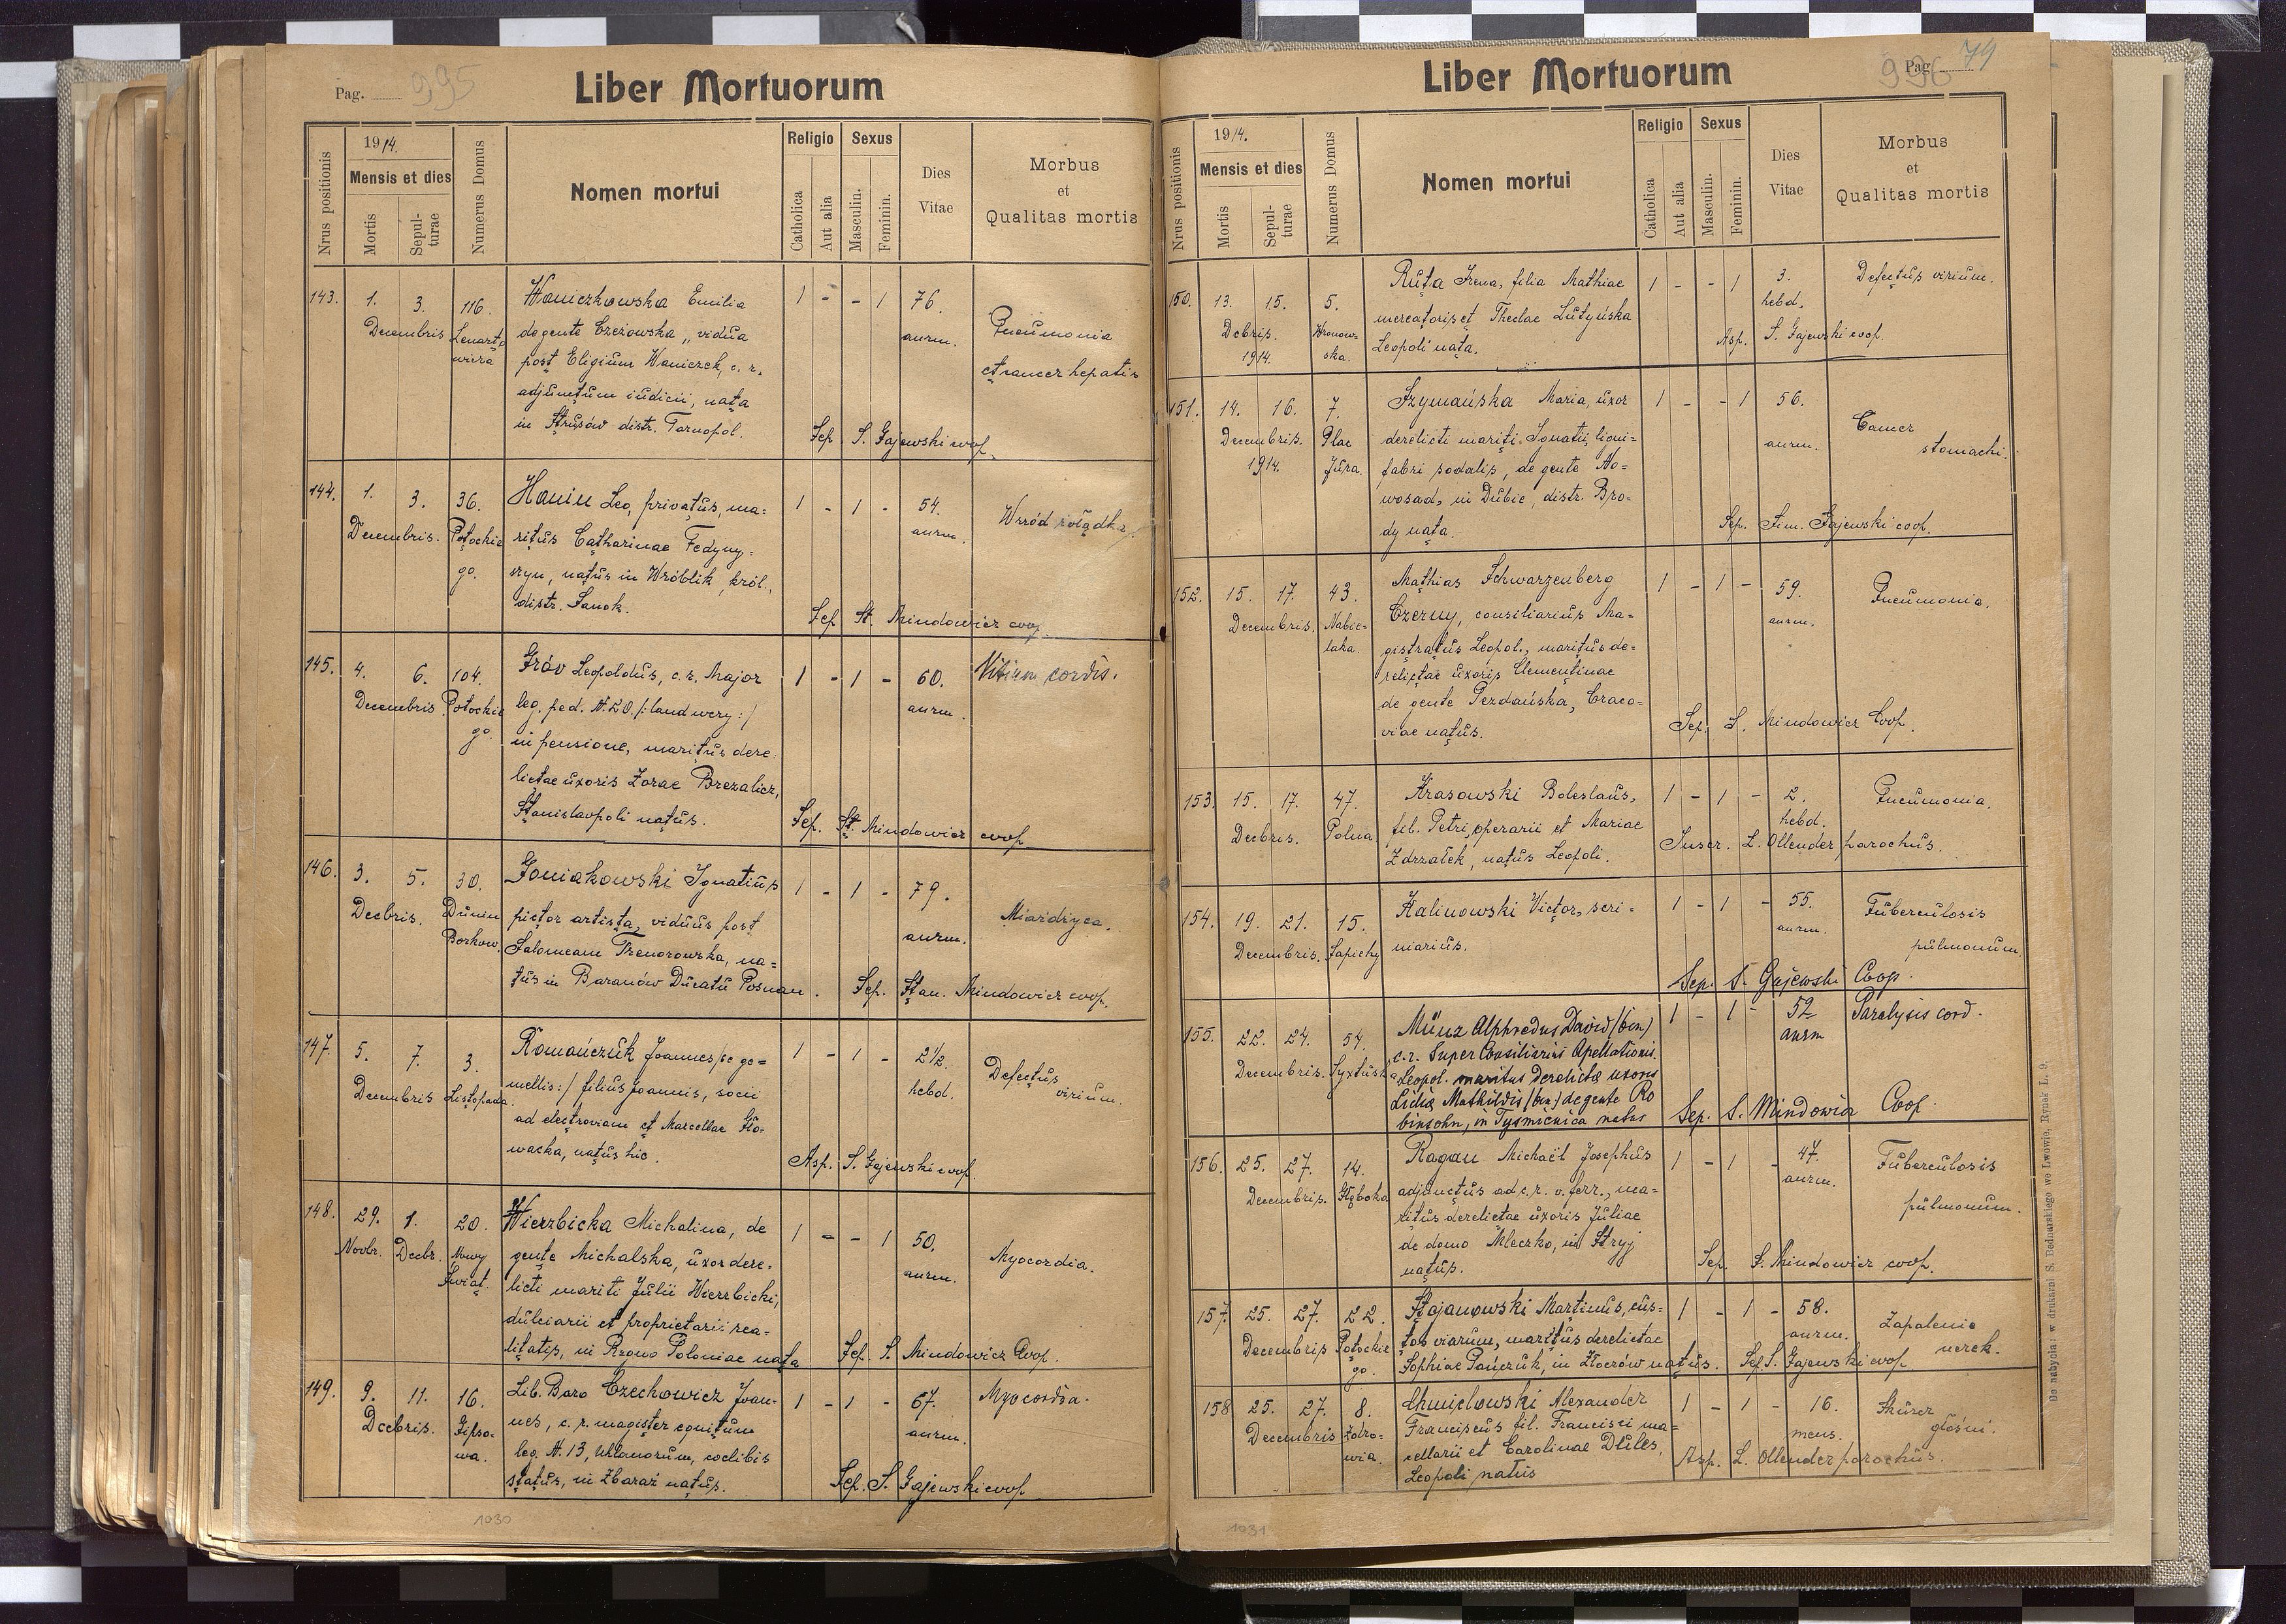 Pag. 995
Liber Mortuorum
Nrus positionis
1914.
Mensis et dies
Mortis
Sepulturae
Numerus Domus
Nomen mortui
Religio
Catholica
Aut alia
Sexus
Masculin.
Feminin.
Dies Vitae
Morbus et Qualitas mortis
143. 1. 3. Decembris 116.
Waniczkowska Emilia
de gente Czeżowska, vidua
post Eligium Waniczek, c. r.
adjunctum iudicii, nata
in Strusów distr. Tarnopol.
1 - - 1 76. annr.
Pneumonia
et cancer hepatis
Sep. S. Gajewski coop.
144. 1. 3. Decembris. 36. Potockiego.
Hanin Leo, privatus, ma-
ritus Catharinae Fedyny-
szyn, natus in Wróblik król.,
distr. Sanok.
1 - 1 - 54. annr.
Wrzód żołądka.
Sep. St. Mindowicz coop.
145. 4. 6. Decembris 104. Potockiego.
Gróv Leopoldus, c. r. Major
leg. ped. N. 20. /:landwery:/
in pensione, maritus dere-
lictae uxoris Zorae Brezalicz,
Stanislaopoli natus.
1 - 1 - 60. annr.
Vitium cordis.
Sep. St. Mindowicz coop
146. 3. 5. Decbris. 30. Dunin Borkow.
Goniakowski Ignatius
pictor artista, viduus post
Salomeam Trenorowska, na-
tus in Baranów Ducatu Posnan.
1 - 1 - 79. annr.
Miażdżyca.
Sep. Stan. Mindowicz coop.
147. 5. 7. Decembris 3. Listopada.
Romańczuk Joannes /:e ge-
mellis:/ filius Joannis, socii
ad electroviam et Marcellae Gło-
wacka, natus hic.
1 - 1 - 2½. hebd.
Defectus virium.
Asp. S. Gajewski coop.
148. 29. Novbr. 1. Decbr. 20. Nowy Świat.
Wierzbicka Michalina, de
gente Michalska, uxor dere-
licti mariti Julii Wierzbicki,
dulciarii et proprietarii rea-
litatis, in Regno Poloniae nata
1 - - 1 50. annr.
Myocordia.
Sep. S. Mindowicz Coop.
149. 9. 11. Decbris. 16. Gipsowa.
Lib. Baro Czechowicz Joan-
nes, c. r. magister equitum
leg. N. 13, Uhlanorum, coelibis
status, in Zbaraż natus.
1 - 1 - 67. annr.
Myocordia.
Sep. S. Gajewski coop
1030
Pag. 996 79
Liber Mortuorum
Nrus positionis
1914.
Mensis et dies
Mortis
Sepulturae
Numerus Domus
Nomen mortui
Religio
Catholica
Aut alia
Sexus
Masculin.
Feminin.
Dies Vitae
Morbus et Qualitas mortis
150. 13. 15. Debris. 1914. 5. Wronowska.
Ruta Irena, filia Mathiae
mercatoris et Theclae Lutyńska
Leopoli nata.
1 - - 1 3. hebd.
Defectus virium.
Asp. S. Gajewski coop.
151. 14. 16. Decembris. 1914. 7. Plac Jura.
Szymańska Maria, uxor
derelicti mariti Ignatii, ligni-
fabri sodalis, de gente No-
wosad, in Dubie, distr. Bro-
dy nata.
1 - - 1 56. annr.
Cancer stomachi.
Sep. Sim. Gajewski coop.
152. 15. 17. Decembris. 43. Nabielaka.
Mathias Schwarzenberg
Czerny, consiliarius Ma-
gistratus Leopol., maritus de-
relictae uxoris Clementinae
de gente Pezdańska, Craco-
viae natus.
1 - 1 - 59. annr.
Pneumonia.
Sep. S. Mindowicz Coop.
153. 15. 17. Decbris. 47. Polna
Krasowski Boleslaus,
fil. Petri, operarii et Mariae
Zdrzałek, natus Leopoli.
1 - 1 - 2. hebd.
Pneumonia.
Inscr. L. Ollender parochus.
154. 19. 21. Decembris. 15. Sapiehy
Kalinowski Victor, scri-
niarius.
1 - 1 - 55. annr.
Tuberculosis pulmonum
Sep. S. Gajewski Coop.
155. 22. 24. Decembris. 54. Syxtuska
Münz Alphredus David /bin/
c. r. Super Consiliarius Apellationis
Leopol. maritus derelictę uxoris
Lidię Mathildis /bin/ de gente Ro
binsohn, in Tyśmienica natus
1 - 1 - 52 annr
Paralysis cord.
Sep. S. Mindowicz Coop.
156. 25. 27. Decembris. 14. Głęboka
Kagan Michaël Josephus
adjunctus ad c. r. v. ferr., ma-
ritus derelictae uxoris Juliae
de domo Mleczko, in Stryj
natus.
1 - 1 - 47. annr.
Tuberculosis pulmonum.
Sep. S. Mindowicz coop.
157. 25. 27. Decembris 22. Potockiego.
Stajanowski Martinus, cus-
tos viarum, maritus derelictae
Sophiae Pańczuk, in Złoczów natus.
1 - 1 - 58. annr.
Zapalenie nerek.
Sep. S. Gajewski coop
158 25. 27. Decembris 8. Zdrowia.
Chmielowski Alexander
Franciscus fil. Francisci ma-
cellarii et Carolinae Dules,
Leopoli natus
1 - 1 - 16. mens.
Skurcz głośni.
Asp. L. Ollender parochus.
1031
Do nabycia w drukarni S. Bednarskiego we Lwowie, Rynek L. 9.